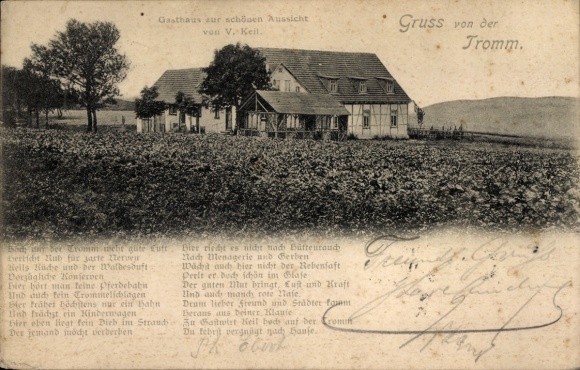 Gasthaus zur schönen Aussicht
von V. Keil.
Gruss von der
Tromm.
Hoch auf der Tromm weht gute Luft
Herrscht Ruh für zarte Nerven
Keils Küche und der Waldesduft
Vorzügliche Konserven
Hier hört man keine Pferdebahn
Und auch kein Trommelschlagen
Hier kräht höchstens nur ein Hahn
Und krächzt ein Kinderwagen
Hier oben liegt kein Dieb im Strauch
Der jemand möcht verderben
Hier riecht es nicht nach Hüttenrauch
Nach Menagerie und Gerben
Wächst auch hier nicht der Rebensaft
Perlt er doch schön im Glase
Der guten Mut bringt, Lust und Kraft
Und auch manch rote Nase.
Drum lieber Freund und Städter komm
Heraus aus deiner Klause
Zu Gastwirt Keil hoch auf der Tromm
Du kehrst vergnügt nach Hause.